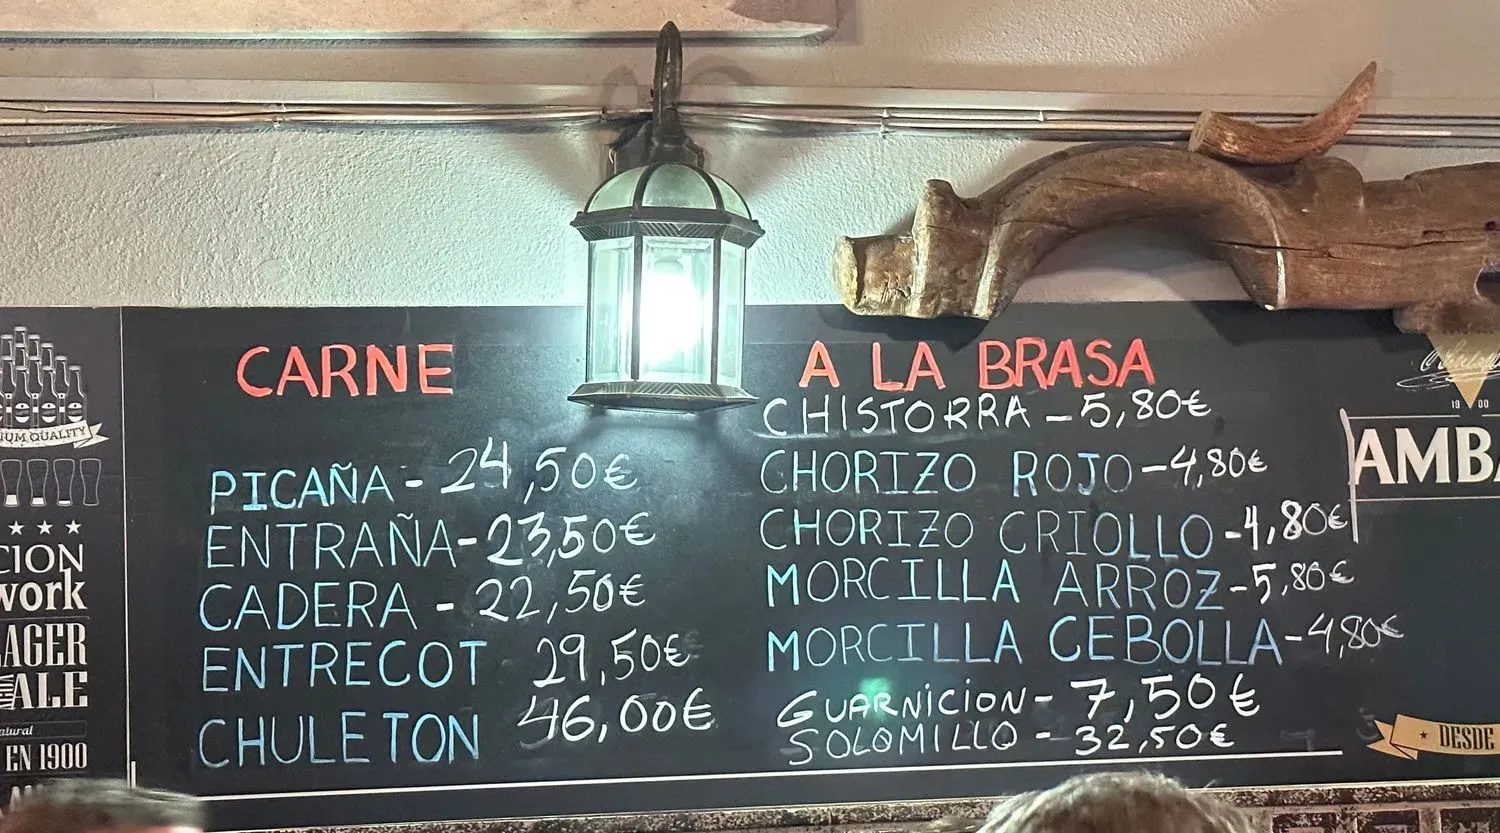 CARNE
PICAÑA - 24,50€
ENTRAÑA - 23,50€
CADERA - 22,50€
ENTRECOT 29,50€
CHULETON 46,00€
A LA BRASA
CHISTORRA - 5,80€
CHORIZO ROJO - 4,80€
CHORIZO CRIOLLO - 4,80€
MORCILLA ARROZ - 5,80€
MORCILLA CEBOLLA - 4,80€
GUARNICION - 7,50€
SOLOMILLO - 32,50€
IUM QUALITY
CION
work
LAGER
ALE
atural
EN 1900
19 00
AMBA
DESDE